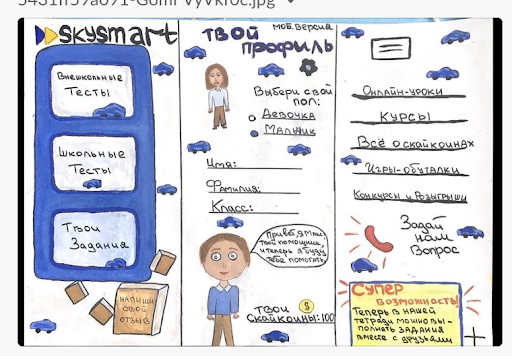 SKYSMART
Внешкольные
Тесты
Школьные
Тесты
Твои
Задания
напиши
свой
отзыв
моб.версия
Твой
профиль
Выбери свой
пол:
Девочка
Мальчик
Имя:
Фамилия:
Класс:
твой помощник,
и теперь я буду
тебе помогать!
Твои
Скайкоины:100
Онлайн-уроки
Курсы
Всё о скайкоинах
Игры-обучалки
Конкурсы и Розыгрыши
Задай
нам
Вопрос
Супер
возможность!
Теперь в нашей
тетради можно вы-
полнять задания
вместе с друзьями